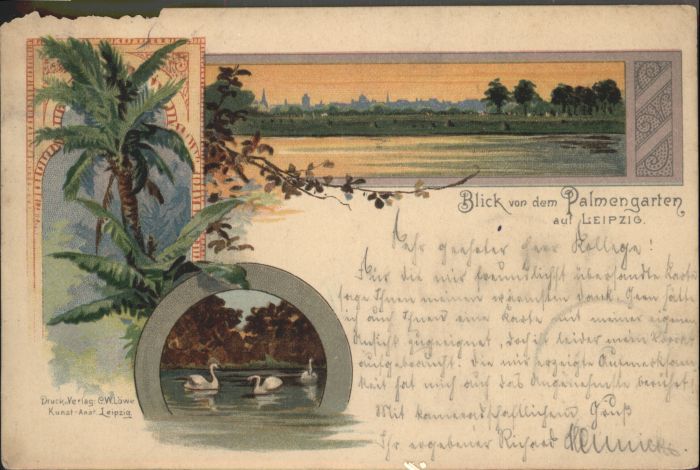 Blick von dem Palmengarten
auf LEIPZIG.
Sehr geehrter Herr Kollege!
Für die mir freundlichst übersandte Karte
sage Ihnen meinen wärmsten Dank. Gern hätte
ich auch Ihnen eine Karte mit meiner eigenen
Ansicht zugeeignet, doch ist leider mein Vorrat
aufgebraucht. Die mir erzeigte Aufmerksam
keit hat mich auf das Angenehmste berührt.
Mit kameradschaftlichem Gruß
Ihr ergebener Richard
Druck u. Verlag: C.W. Löwe
Kunst-Anst. Leipzig